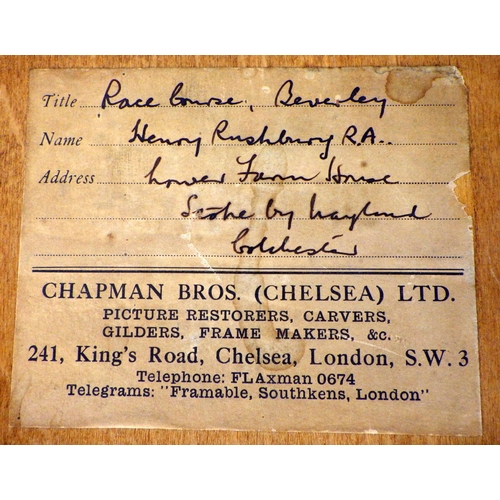 Title Race Course, Beverley
Name Henry Rushbury R.A.
Address Lower Farm House
Stoke by Nayland
Colchester
CHAPMAN BROS. (CHELSEA) LTD.
PICTURE RESTORERS, CARVERS,
GILDERS, FRAME MAKERS, &c.
241, King's Road, Chelsea, London, S.W. 3
Telephone: FLAxman 0674
Telegrams: "Framable, Southkens, London"